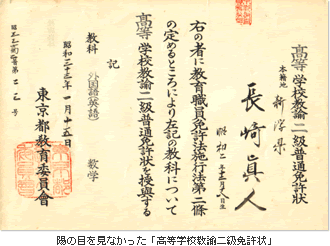 高等学校教諭二級普通免許状
本籍地 新潟県
長崎眞人
昭和二年
右の者に教育職員免許法施行法第二條
の定めるところにより左記の教科について
高等学校教諭二級普通免許状を授與する
記
教科 外国語(英語) 数学
昭和三十三年一月十五日
東京都教育委員会
陽の目を見なかった「高等学校教諭二級免許状」